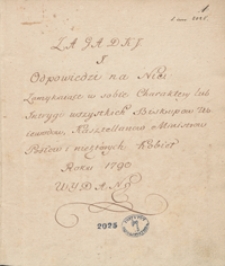 1
ZAGADKI
I
Odpowiedzi na Nie
Zamykaiące w sobie Charaktery lub
Intrygi wszystkich Biskupow Wo
iewodow, Kasztellanow Ministrow
Posłow i niektórych Kobiet
Roku 1790
WYDANE
2925